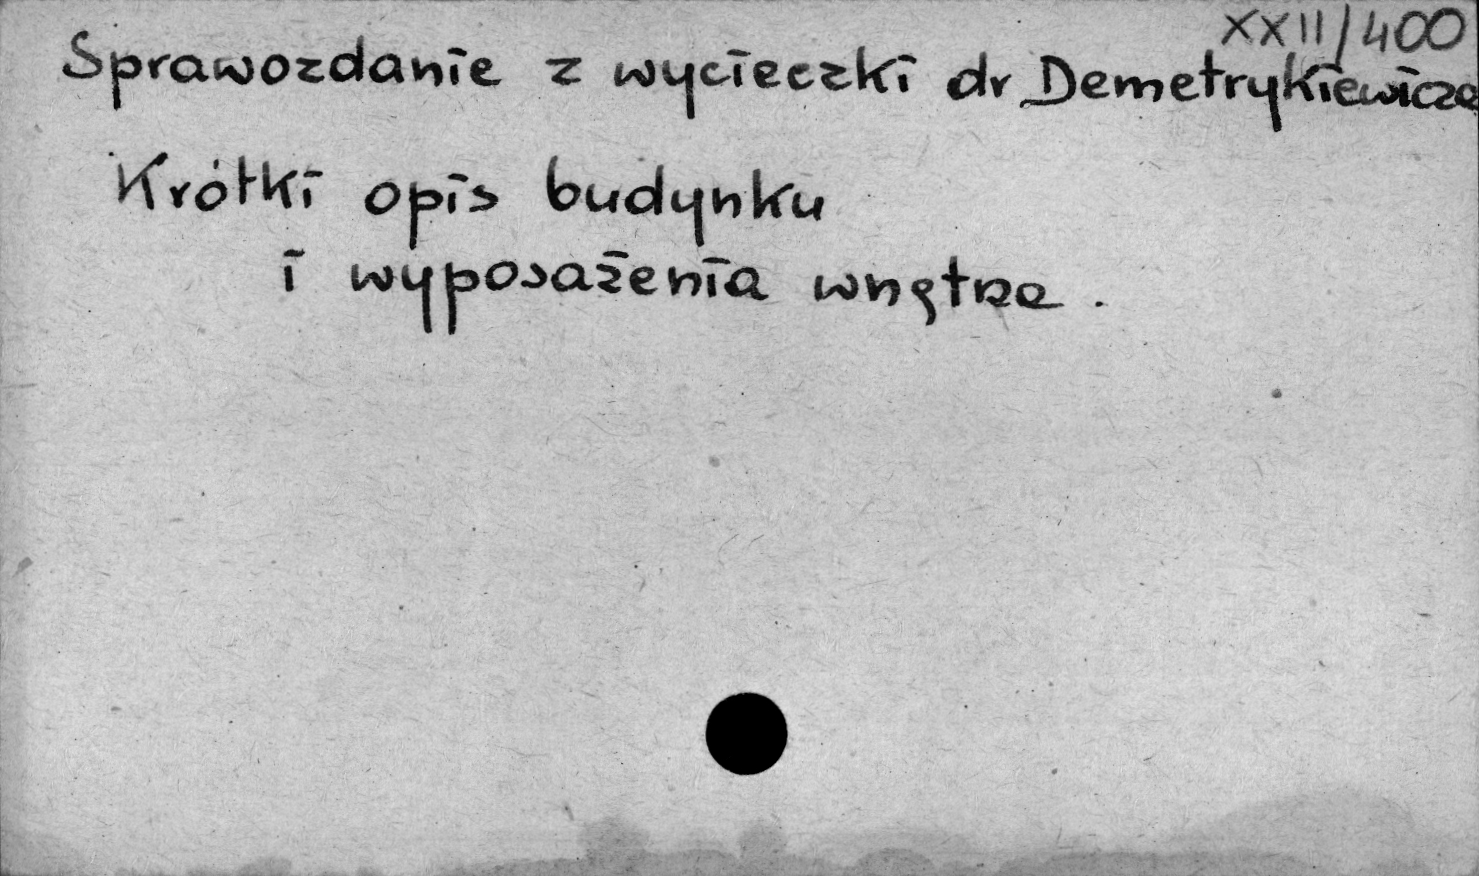 XXII/400
Sprawozdanie z wycieczki dr Demetrykiewicza
Krótki opis budynku
i wyposażenia wnętrza.